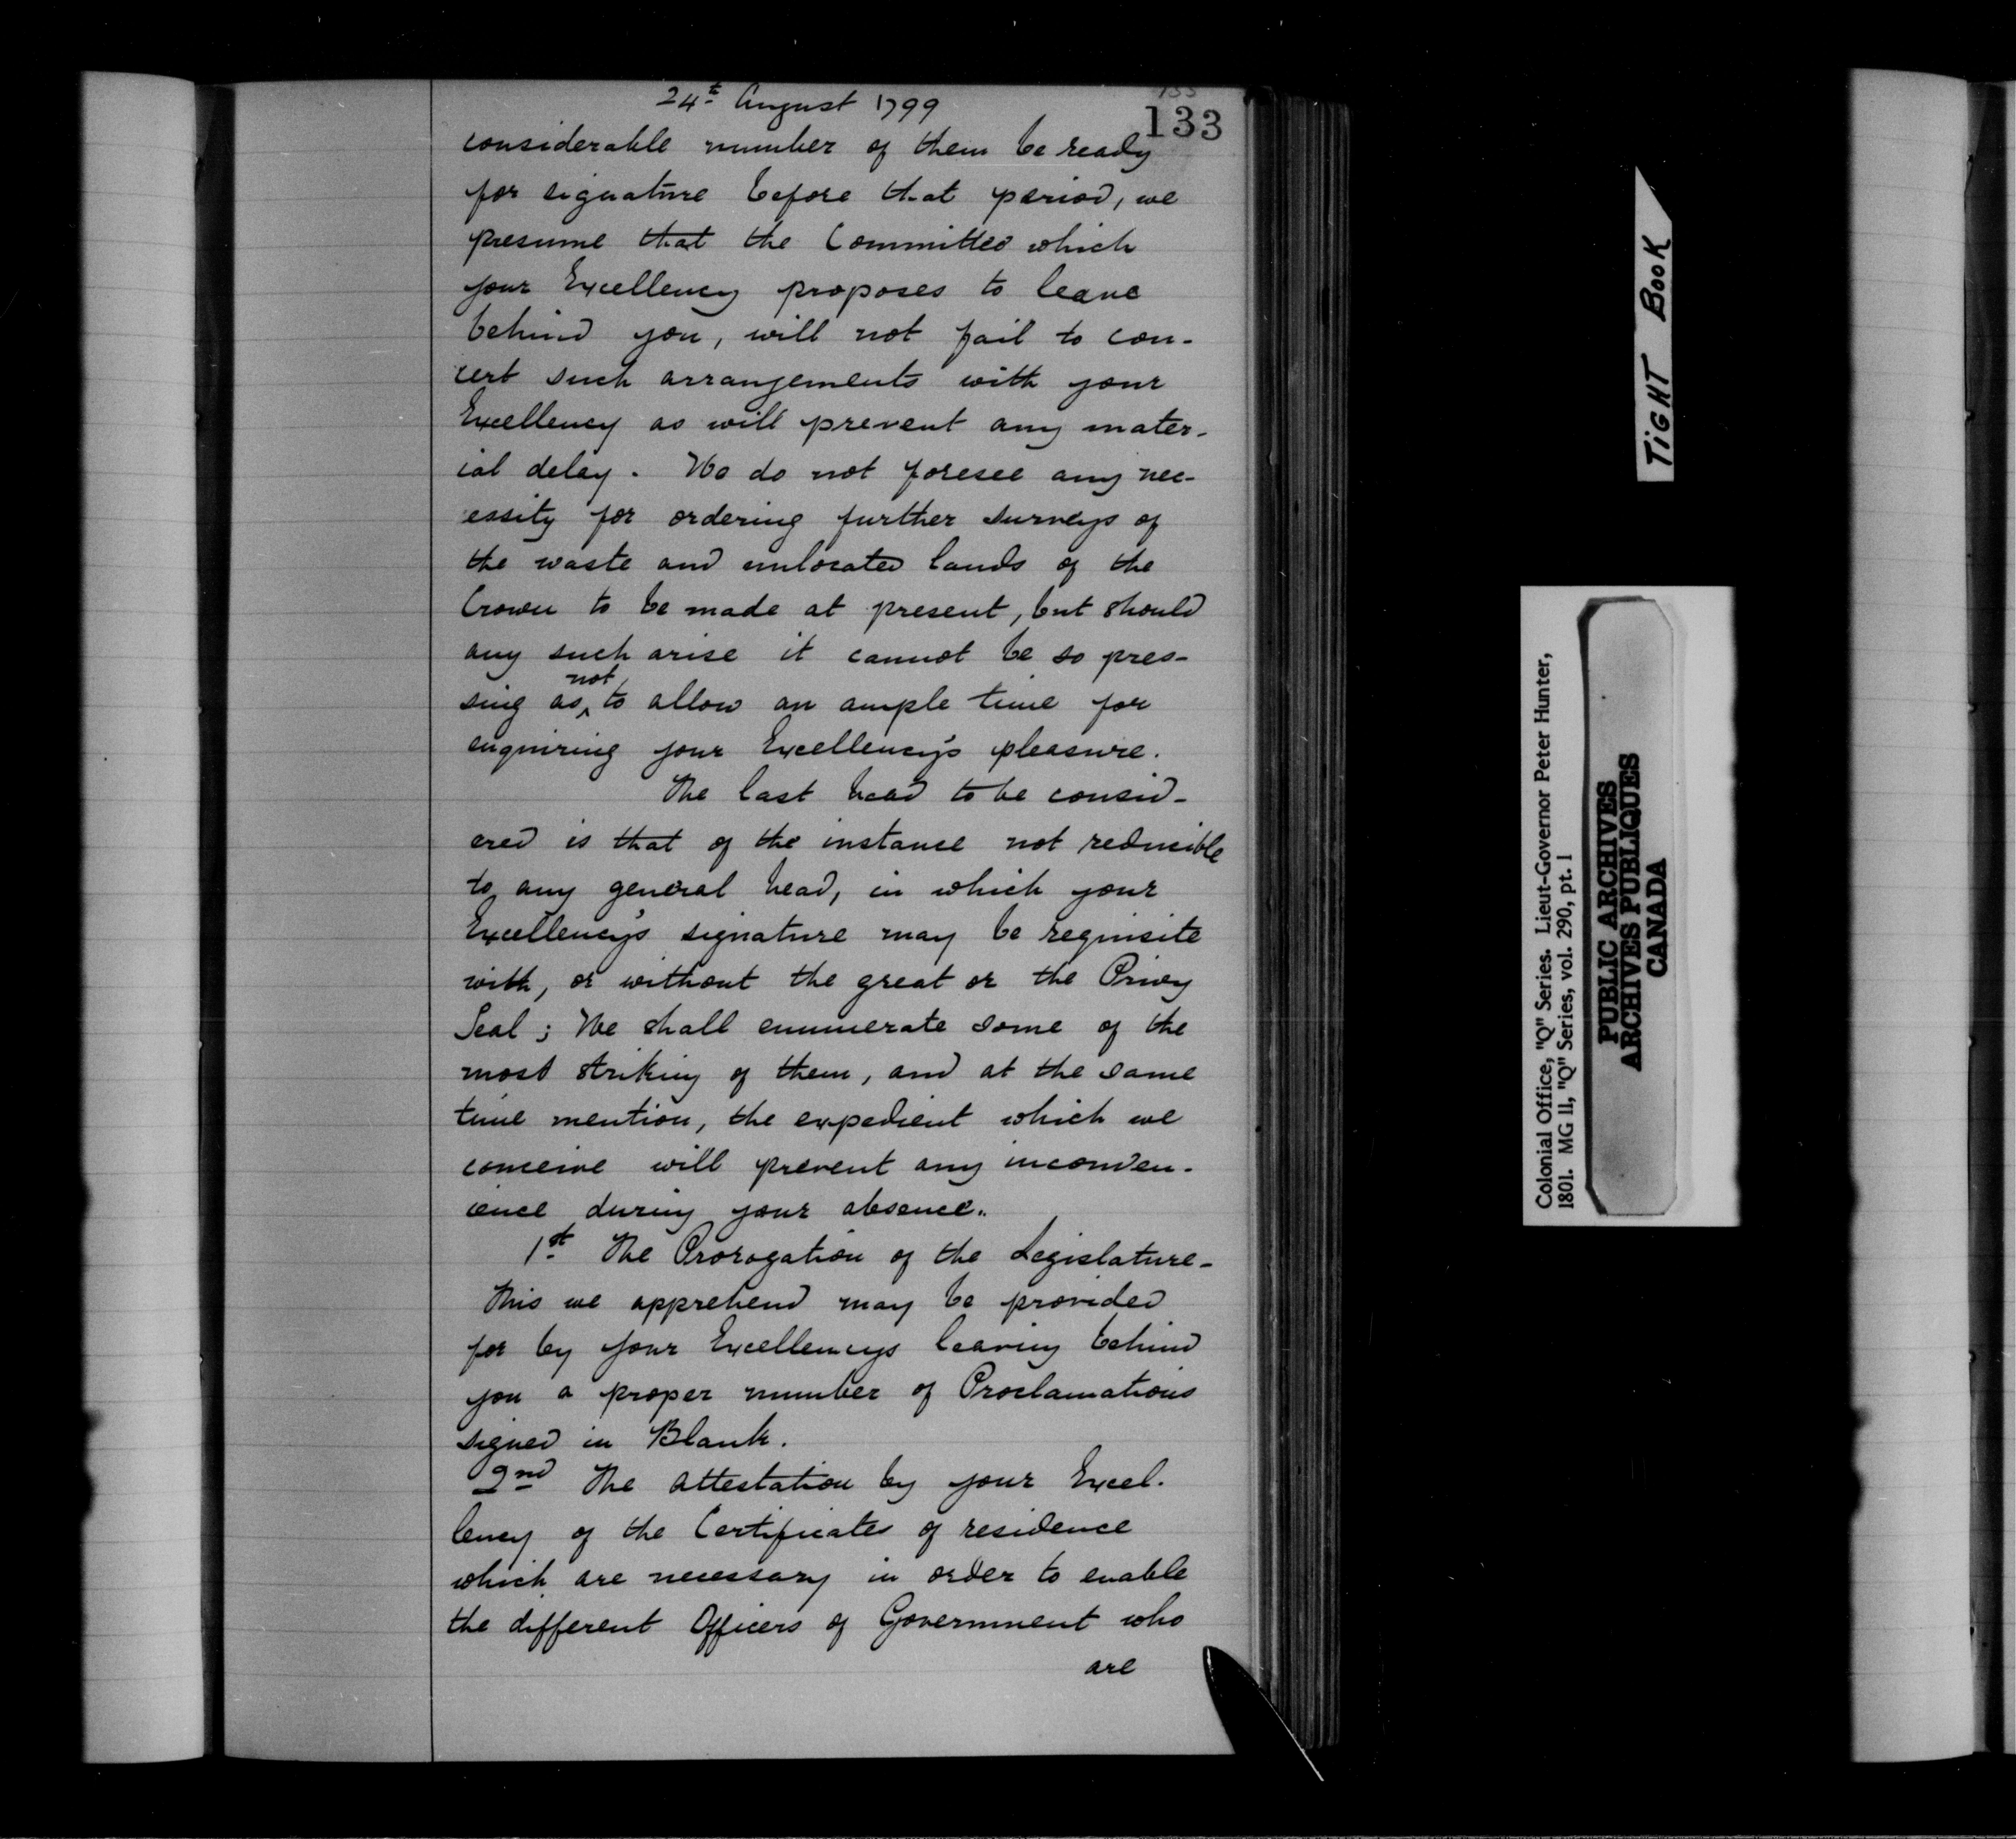 133
24th August 1799
133
considerable number of them be ready
for signature before that period, we
presume that the Committee which
your Excellency proposes to leave
behind you, will not fail to con-
cert such arrangements with your
Excellency as will prevent any mater-
ial delay. We do not foresee any nec-
essity for ordering further surveys of
the waste and unlocated lands of the
Crown to be made at present, but should
any such arise it cannot be so pres-
sing as not to allow an ample time for
enquiring your Excellency's pleasure.
The last head to be consid-
ered is that of the instance not reducible
to any general head, in which your
Excellency's signature may be requisite
with, or without the great or the Privy
Seal; We shall enumerate some of the
most striking of them, and at the same
time mention, the expedient which we
conceive will prevent any inconven-
ience during your absence.
1st The Prorogation of the Legislature-
This we apprehend may be provided
for by your Excellencys leaving behind
you a proper number of Proclamations
signed in Blank.
2nd The attestation by your Excel-
lency of the Certificates of residence
which are necessary in order to enable
the different Officers of Government who
are
TIGHT BOOK
Colonial Office, "Q" Series. Lieut-Governor Peter Hunter,
1801. MG 11, "Q" Series, vol. 290, pt. 1
PUBLIC ARCHIVES
ARCHIVES PUBLIQUES
CANADA